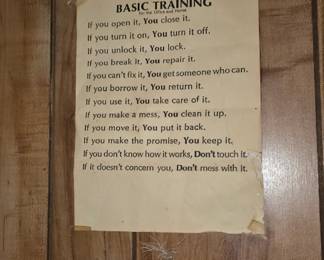 BASIC TRAINING
For the Office and Home
If you open it, You close it.
If you turn it on, You turn it off.
If you unlock it, You lock.
If you break it, You repair it.
If you can't fix it, You get someone who can.
If you borrow it, You return it.
If you use it, You take care of it.
If you make a mess, You clean it up.
If you move it, You put it back.
If you make the promise, You keep it.
If you don't know how it works, Don't touch it.
If it doesn't concern you, Don't mess with it.